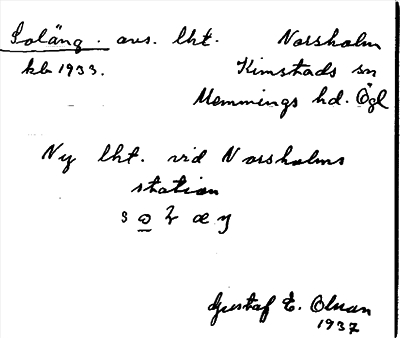 Soläng. avs. lht. Norsholm
kb 1933. Kimstads sn
Memmings hd. Ögl
Ny lht. vid Norsholms
station
Gustaf E. Olson
1937